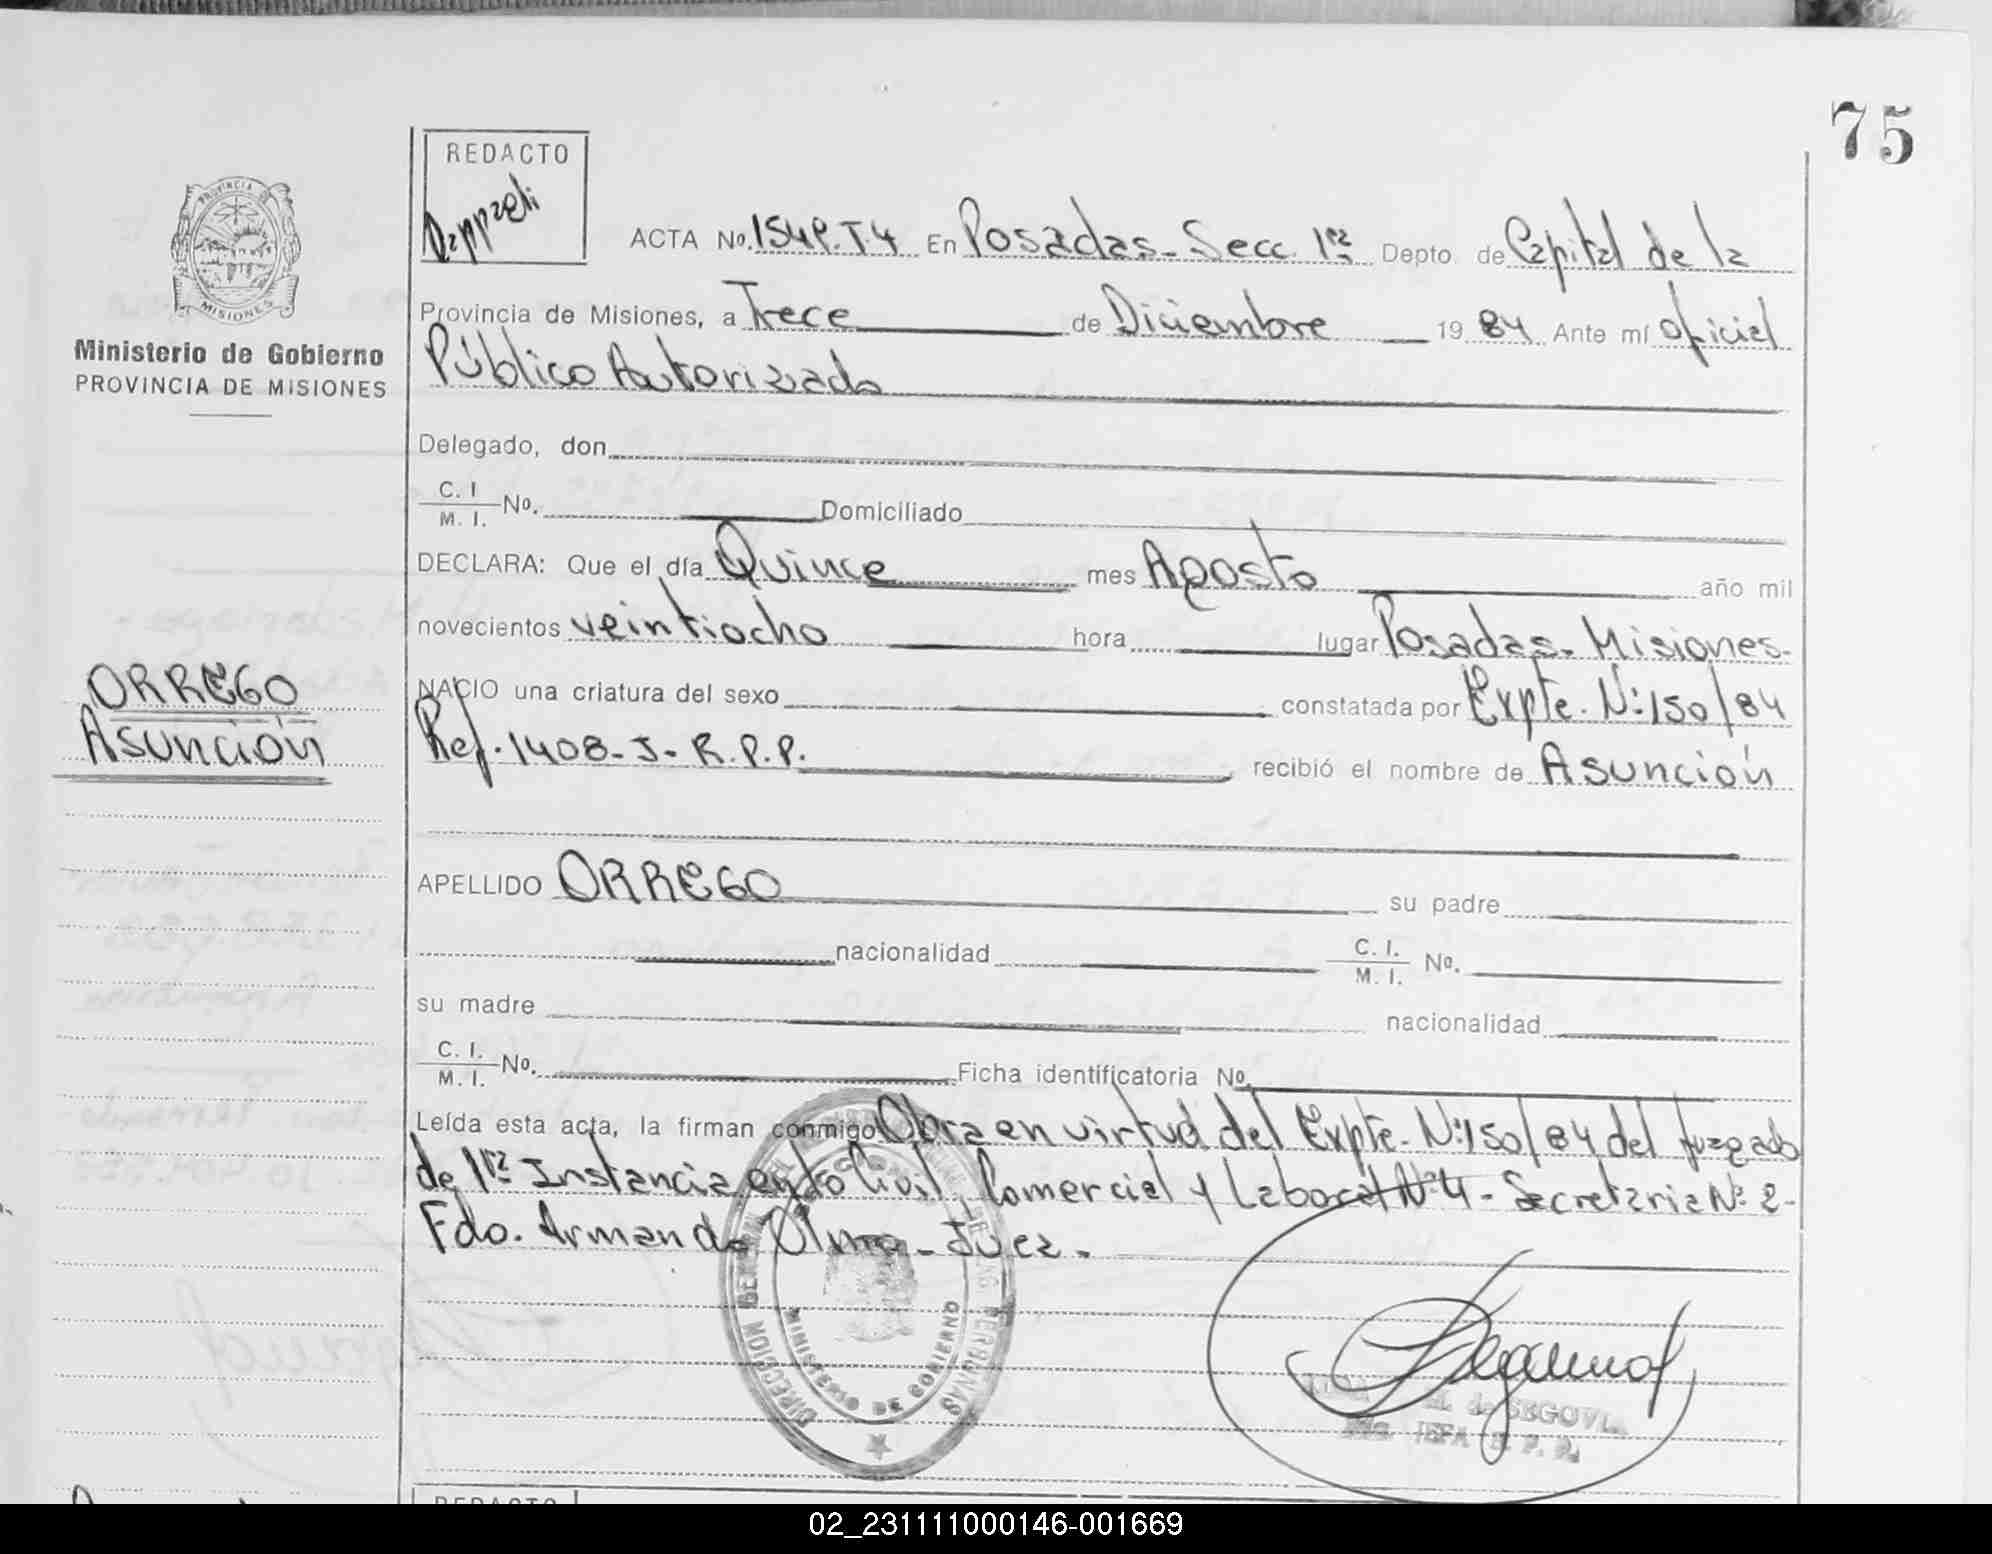 75
REDACTO
PROVINCIA DE
MISIONES
Ministerio de Gobierno
PROVINCIA DE MISIONES
ACTA No. 154P. T4 En Posadas - Secc. 1ra Depto. de Capital de la
Provincia de Misiones, a Trece de Diciembre 1984 Ante mí Oficial
Público Autorizado
Delegado, don
C. I.
M. I. No. Domiciliado
DECLARA: Que el día Quince mes Agosto año mil
novecientos veintiocho hora lugar Posadas - Misiones -
ORREGO
Asunción
NACIO una criatura del sexo constatada por Expte. Nº 150/84
Ref. 1408 - J - R.P.P. recibió el nombre de Asunción
APELLIDO ORREGO su padre
nacionalidad C. I.
M. I. No.
su madre nacionalidad
C. I.
M. I. No. Ficha identificatoria No.
Leída esta acta, la firman conmigo Obra en virtud del Expte. Nº 150/84 del Juzgado
de 1ra Instancia en lo Civil, Comercial y Laboral Nº 4 - Secretaria Nº 2 -
Fdo. Armando Juez -
DIRECCION
MINISTERIO DE GOBIERNO
de SEGOVIA
JEFA
REDACTO
02_231111000146-001669